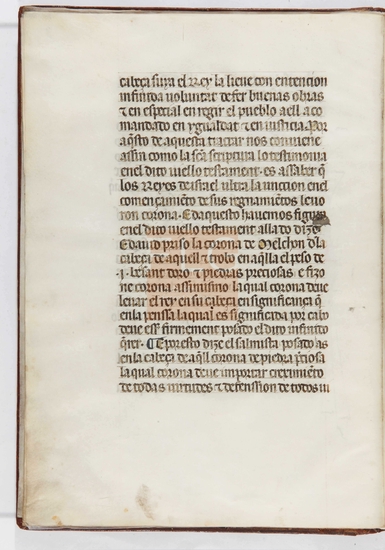 cabeça suya el Rey la lieue con entencion
infinida uoluntat de fer buenas obras
⁊ en especial en regir el pueblo a ell aco
mandado en ygualdat ⁊ en iusticia. Por
aq̃sto de aquesta tractar nos conuiene
assin como la sc̃a scriptura lo testimonia
en el dito uiello testament. es assaber q̃
los Reyes de israel ultra la unccion en el
començamiẽto de sus regnamiẽtos leuo
ron corona. E da questo hauemos figura
en el dito uiello testament alla do dize
Edauid priso la corona de Melchon d̃la
cabeça de aquell ⁊ trobo en aq̃lla el peso de
.j. besant doro ⁊ piedras preciosas. e fizo
ne corona assimismo la qual corona deue
leuar el rey en su cabeça en significança q̃
en la pensa la qual es significida por cabo
deue esser firmement posado el dito infinito
q̃rer. E por esto dize el salmista posado as
en la cabeça de aq̃ll corona de piedra p̃ciosa
la qual corona deue importar creximiẽto
de todas uirtudes ⁊ defenssion de todos ui